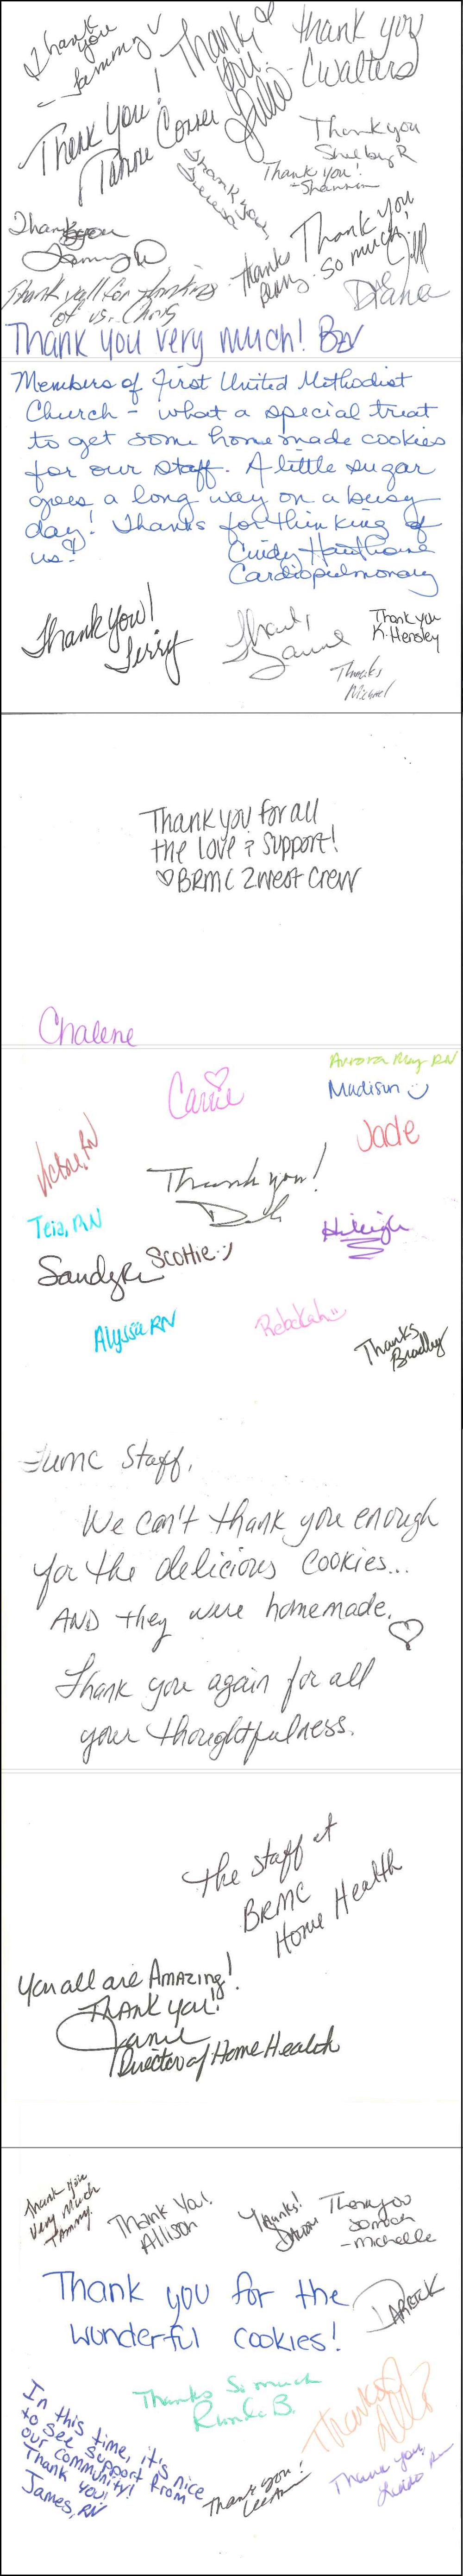 Thank you
Tammy
Thank you!
Julie
Thank you
CWalters
Thank You!
Thank you
Shelby R
Thank you!
- Shannon
Thank you
Teresa
Thank you
Tammy W
Thanks
Penny
Thank you
so much!
Jill
Diana
Thank y'all for thinking
of us. Chris
Thank you very much! Bev
Members of First United Methodist
Church - what a special treat
to get some homemade cookies
for our staff. A little sugar
goes a long way on a busy
day! Thanks for thinking of
us! Cindy Hawthorne
Cardiopulmonary
Thank you!
Terry
Thank you
K. Hensley
Thanks
Michael
Thank you for all
the love & support!
♡ BRMC 2West Crew
Chalene
Carrie
Aurora May RN
Madison
Jade
Thank you!
Teia, RN
Haleigh
Sandy RN
Scottie :)
Alyssa RN
Rebekah
Thanks
Bradley
FUMC Staff,
We can't thank you enough
for the delicious cookies...
AND they were homemade.
Thank you again for all
your thoughtfulness.
The staff at
BRMC
Home Health
You all are Amazing!
THANK YOU!
Janie
Director of Home Health
Thank you
very much
Tammy
Thank You!
Allison
Thanks!
Thank you
so much
- Michelle
Thank you for the
wonderful cookies!
DARRICK
Thanks So much
Ronda B.
In this time, it's nice
to see support from
our community!
Thank you!
James, RN
Thank you!
LeeAnn
Thanks
Thank you,